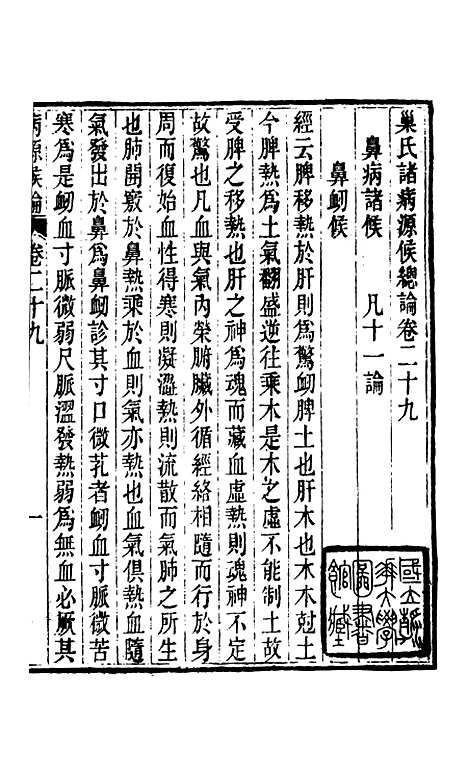 巢氏諸病源候總論卷二十九
鼻病諸候　凡十一論
鼻衂候
經云脾移熱於肝則爲驚衂脾土也肝木也木尅土
今脾熱爲土氣翻盛逆往乘木是木之虛不能制土故
受脾之移熱也肝之神爲魂而藏血虛熱則魂神不定
故驚也凡血與氣內榮腑臟外循經絡相隨而行於身
周而復始血性得寒則凝澀熱則流散而氣肺之所生
也肺開竅於鼻熱乘於血則氣亦熱也血氣俱熱血隨
氣發出於鼻爲鼻衂診其寸口微芤者衂血寸脈微苦
寒爲是衂血寸脈微弱尺脈澀發熱弱爲無血必厥其
病源候論　卷二十九　一
國立
華大學
圖書
館藏